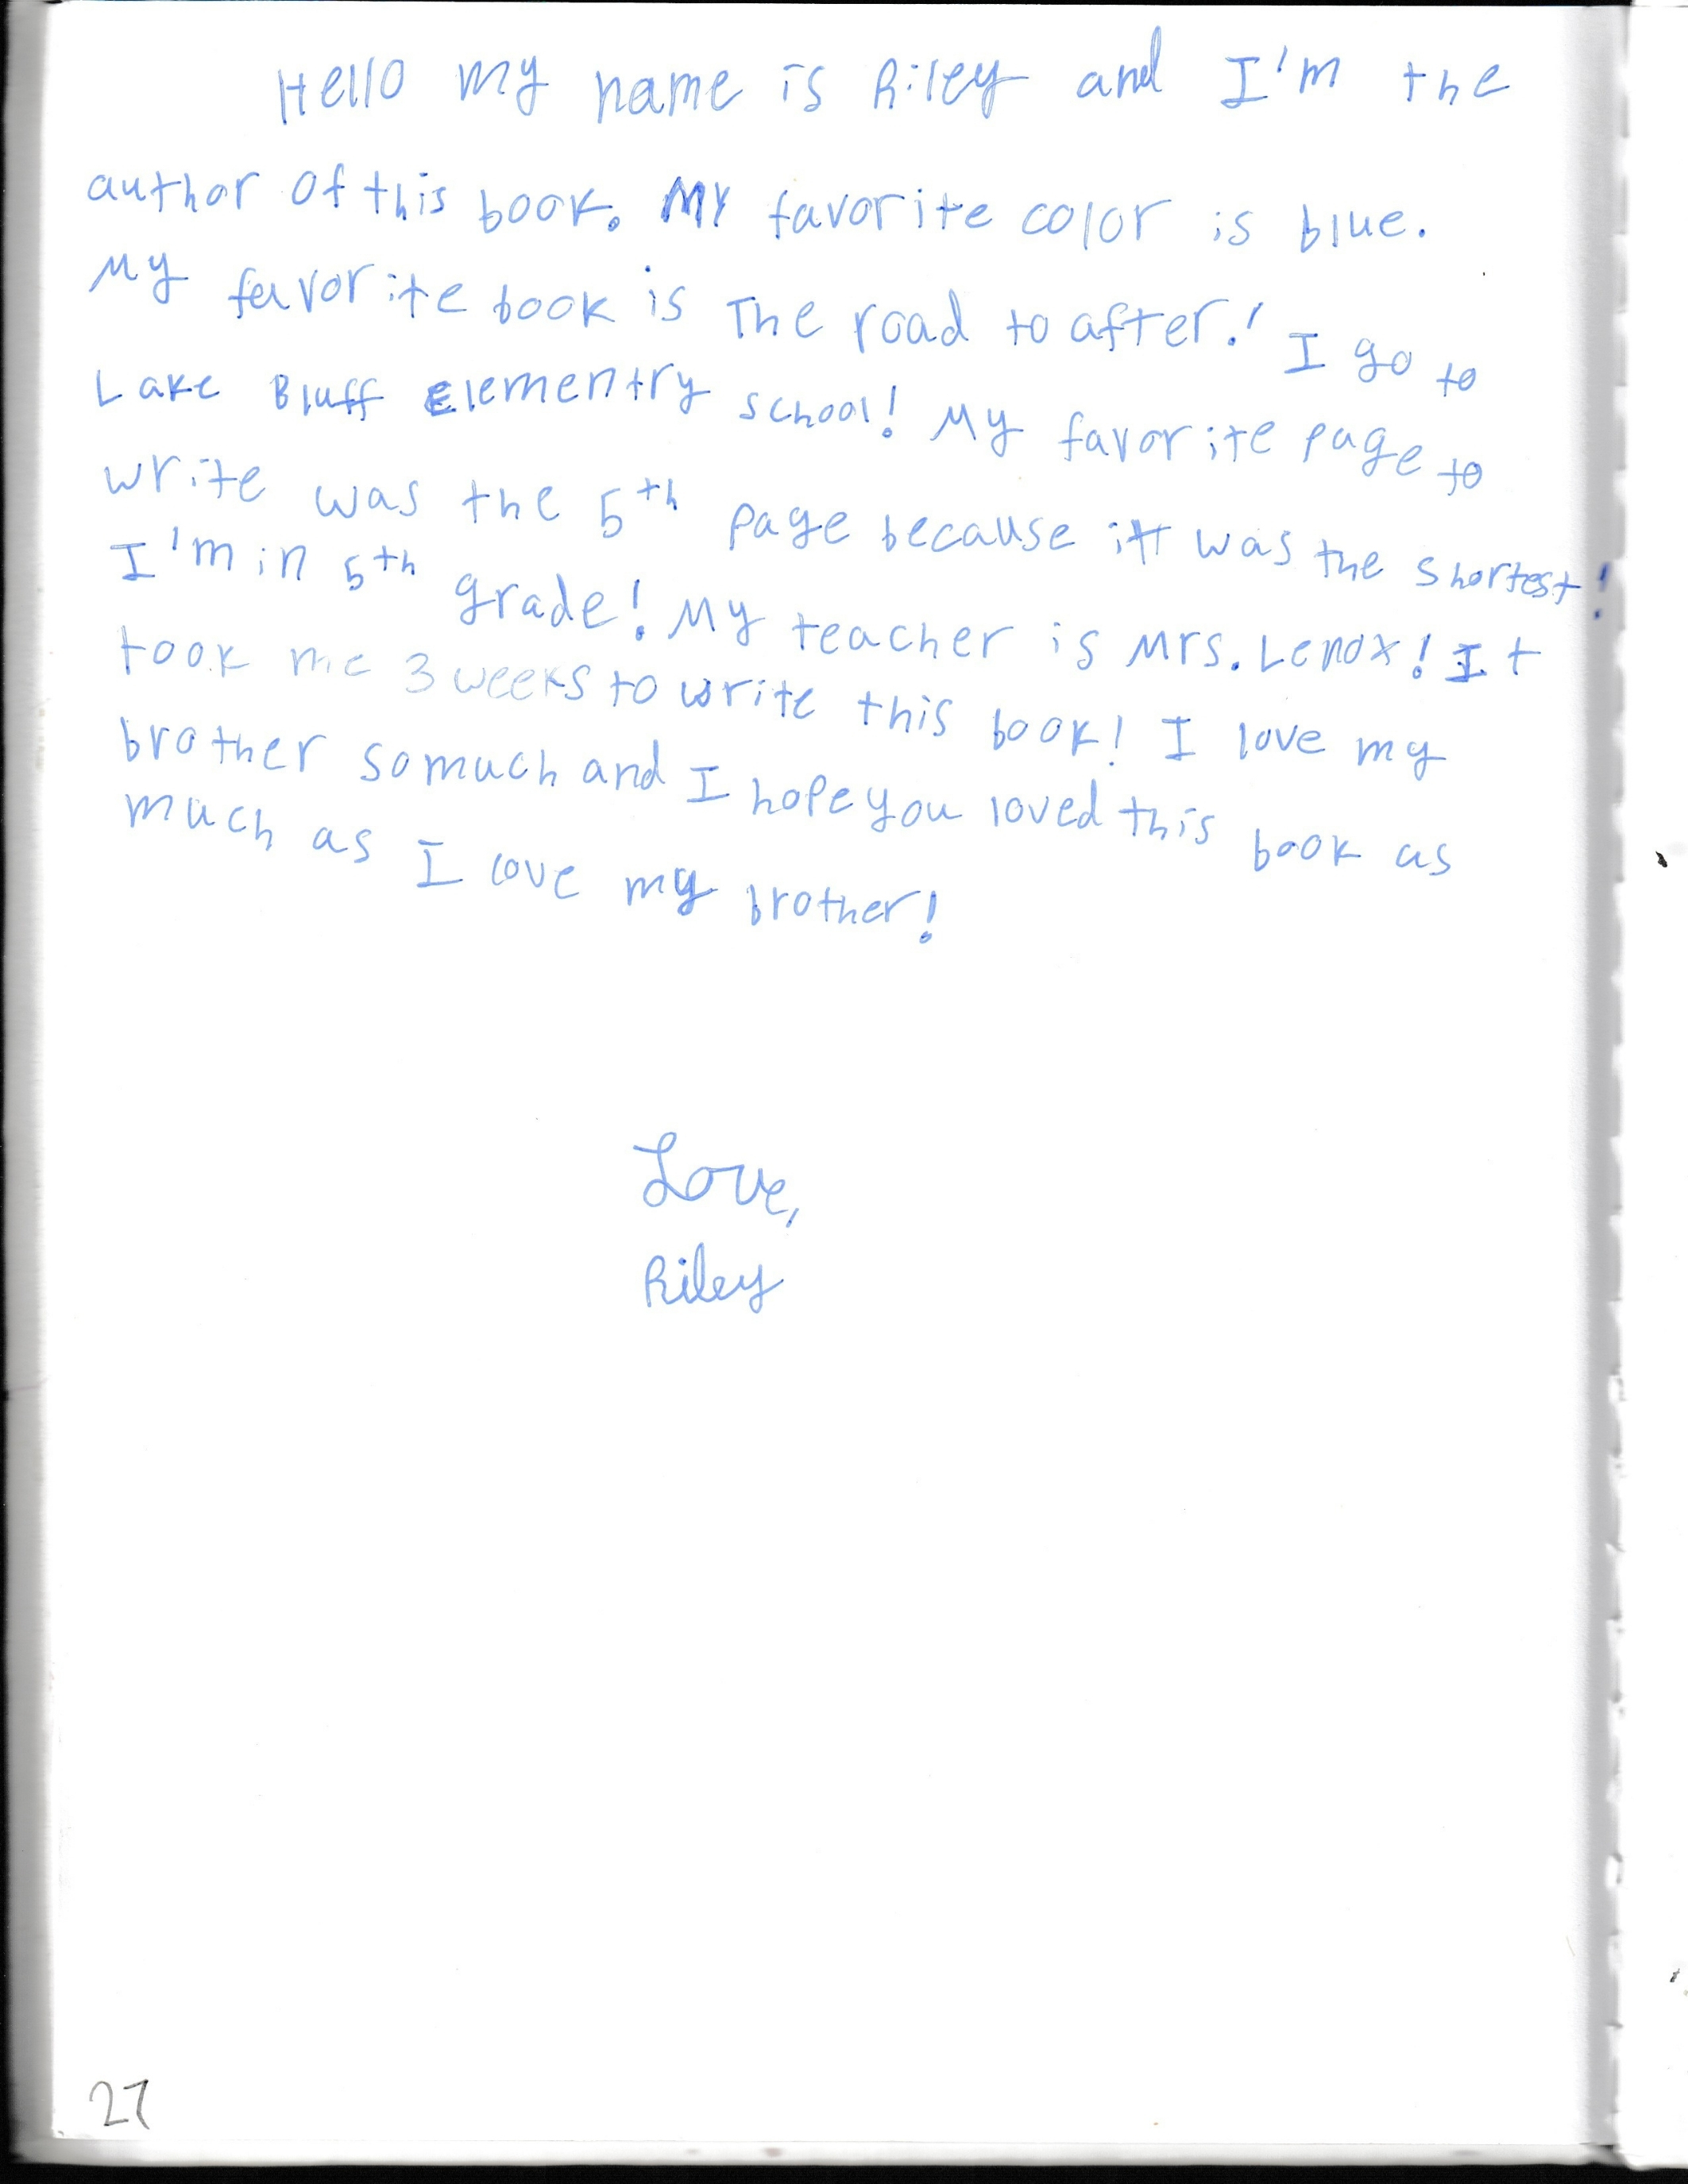 Hello my name is Riley and I'm the
author of this book. My favorite color is blue.
My favorite book is The road to after! I go to
Lake Bluff Elementry school! My favorite page to
write was the 5th page because it was the shortest!
I'm in 5th grade! My teacher is Mrs. Lenox! It
took me 3 weeks to write this book! I love my
brother so much and I hope you loved this book as
much as I love my brother!
Love,
Riley
27